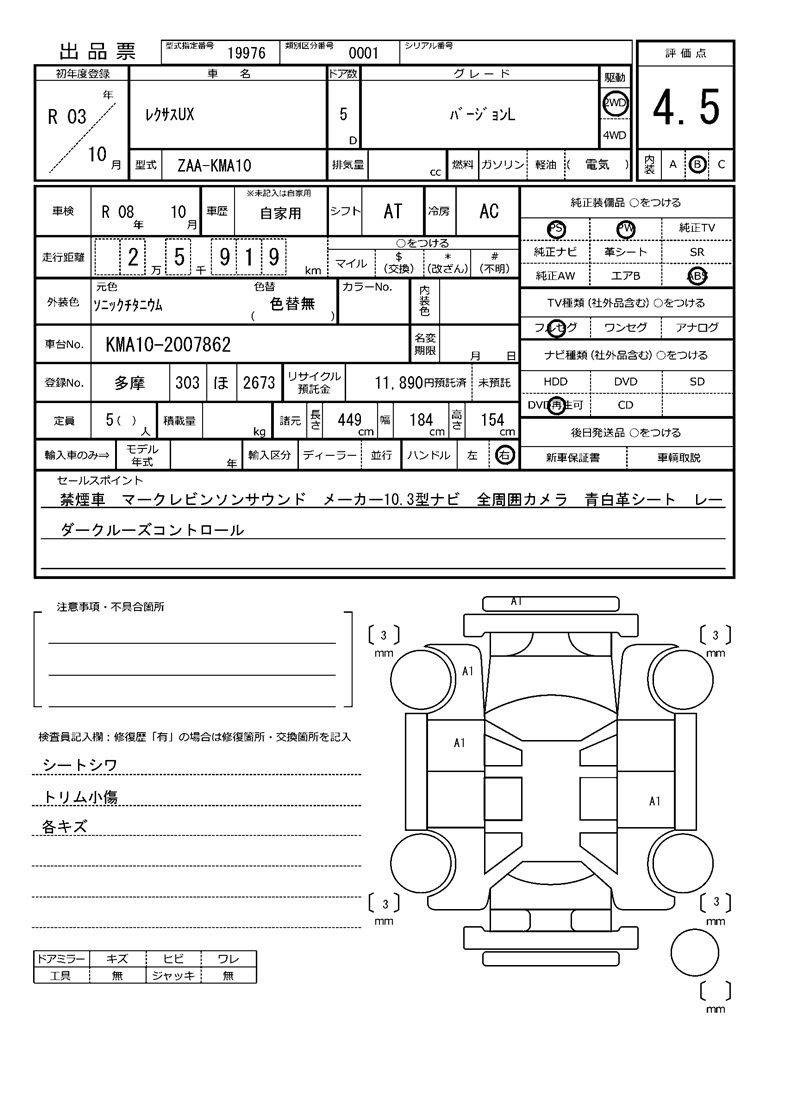 出品票 型式指定番号 19976 類別区分番号 0001 シリアル番号
評価点
初年度登録 車名 ドア数 グレード 駆動
R 03 年 10 月 ﾚｸｻｽUX 5 D ﾊﾞｰｼﾞｮﾝL 2WD 4WD
4.5
型式 ZAA-KMA10 排気量 cc 燃料 ガソリン 軽油 ( 電気 ) 内装 A B C
車検 R 08 年 10 月 車歴 ※未記入は自家用 自家用 シフト AT 冷房 AC
純正装備品 ○をつける
PS PW 純正TV
走行距離 2 万 5 千 9 1 9 km ○をつける
マイル $ (交換) * (改ざん) # (不明)
純正ナビ 革シート SR
純正AW エアB ABS
外装色 元色 ｿﾆｯｸﾁﾀﾆｳﾑ 色替 ( 色替無 ) カラーNo. 内装色
TV種類 (社外品含む) ○をつける
フルセグ ワンセグ アナログ
車台No. KMA10-2007862 名変期限 月 日
ナビ種類 (社外品含む) ○をつける
登録No. 多摩 303 ほ 2673 リサイクル預託金 11,890円預託済 未預託
HDD DVD SD
DVD再生可 CD
定員 5( ) 人 積載量 kg 諸元 長さ 449 cm 幅 184 cm 高さ 154 cm
後日発送品 ○をつける
輸入車のみ⇒ モデル年式 年 輸入区分 ディーラー 並行 ハンドル 左 右
新車保証書 車輌取説
セールスポイント
禁煙車 マークレビンソンサウンド メーカー10.3型ナビ 全周囲カメラ 青白革シート レー
ダークルーズコントロール
注意事項・不具合箇所
A1
3 mm
3 mm
A1
検査員記入欄：修復歴「有」の場合は修復箇所・交換箇所を記入
A1
シートシワ
トリム小傷
A1
各キズ
3 mm
3 mm
ドアミラー キズ ヒビ ワレ
工具 無 ジャッキ 無
mm